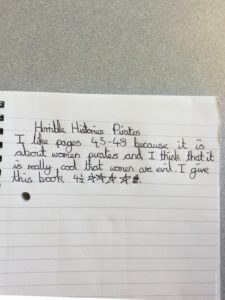 Horrible Histories Pirates
I like pages 43-48 because it is
about women pirates and I think that it
is really cool that women are evil. I give
this book 4½ ☆☆☆☆☆.